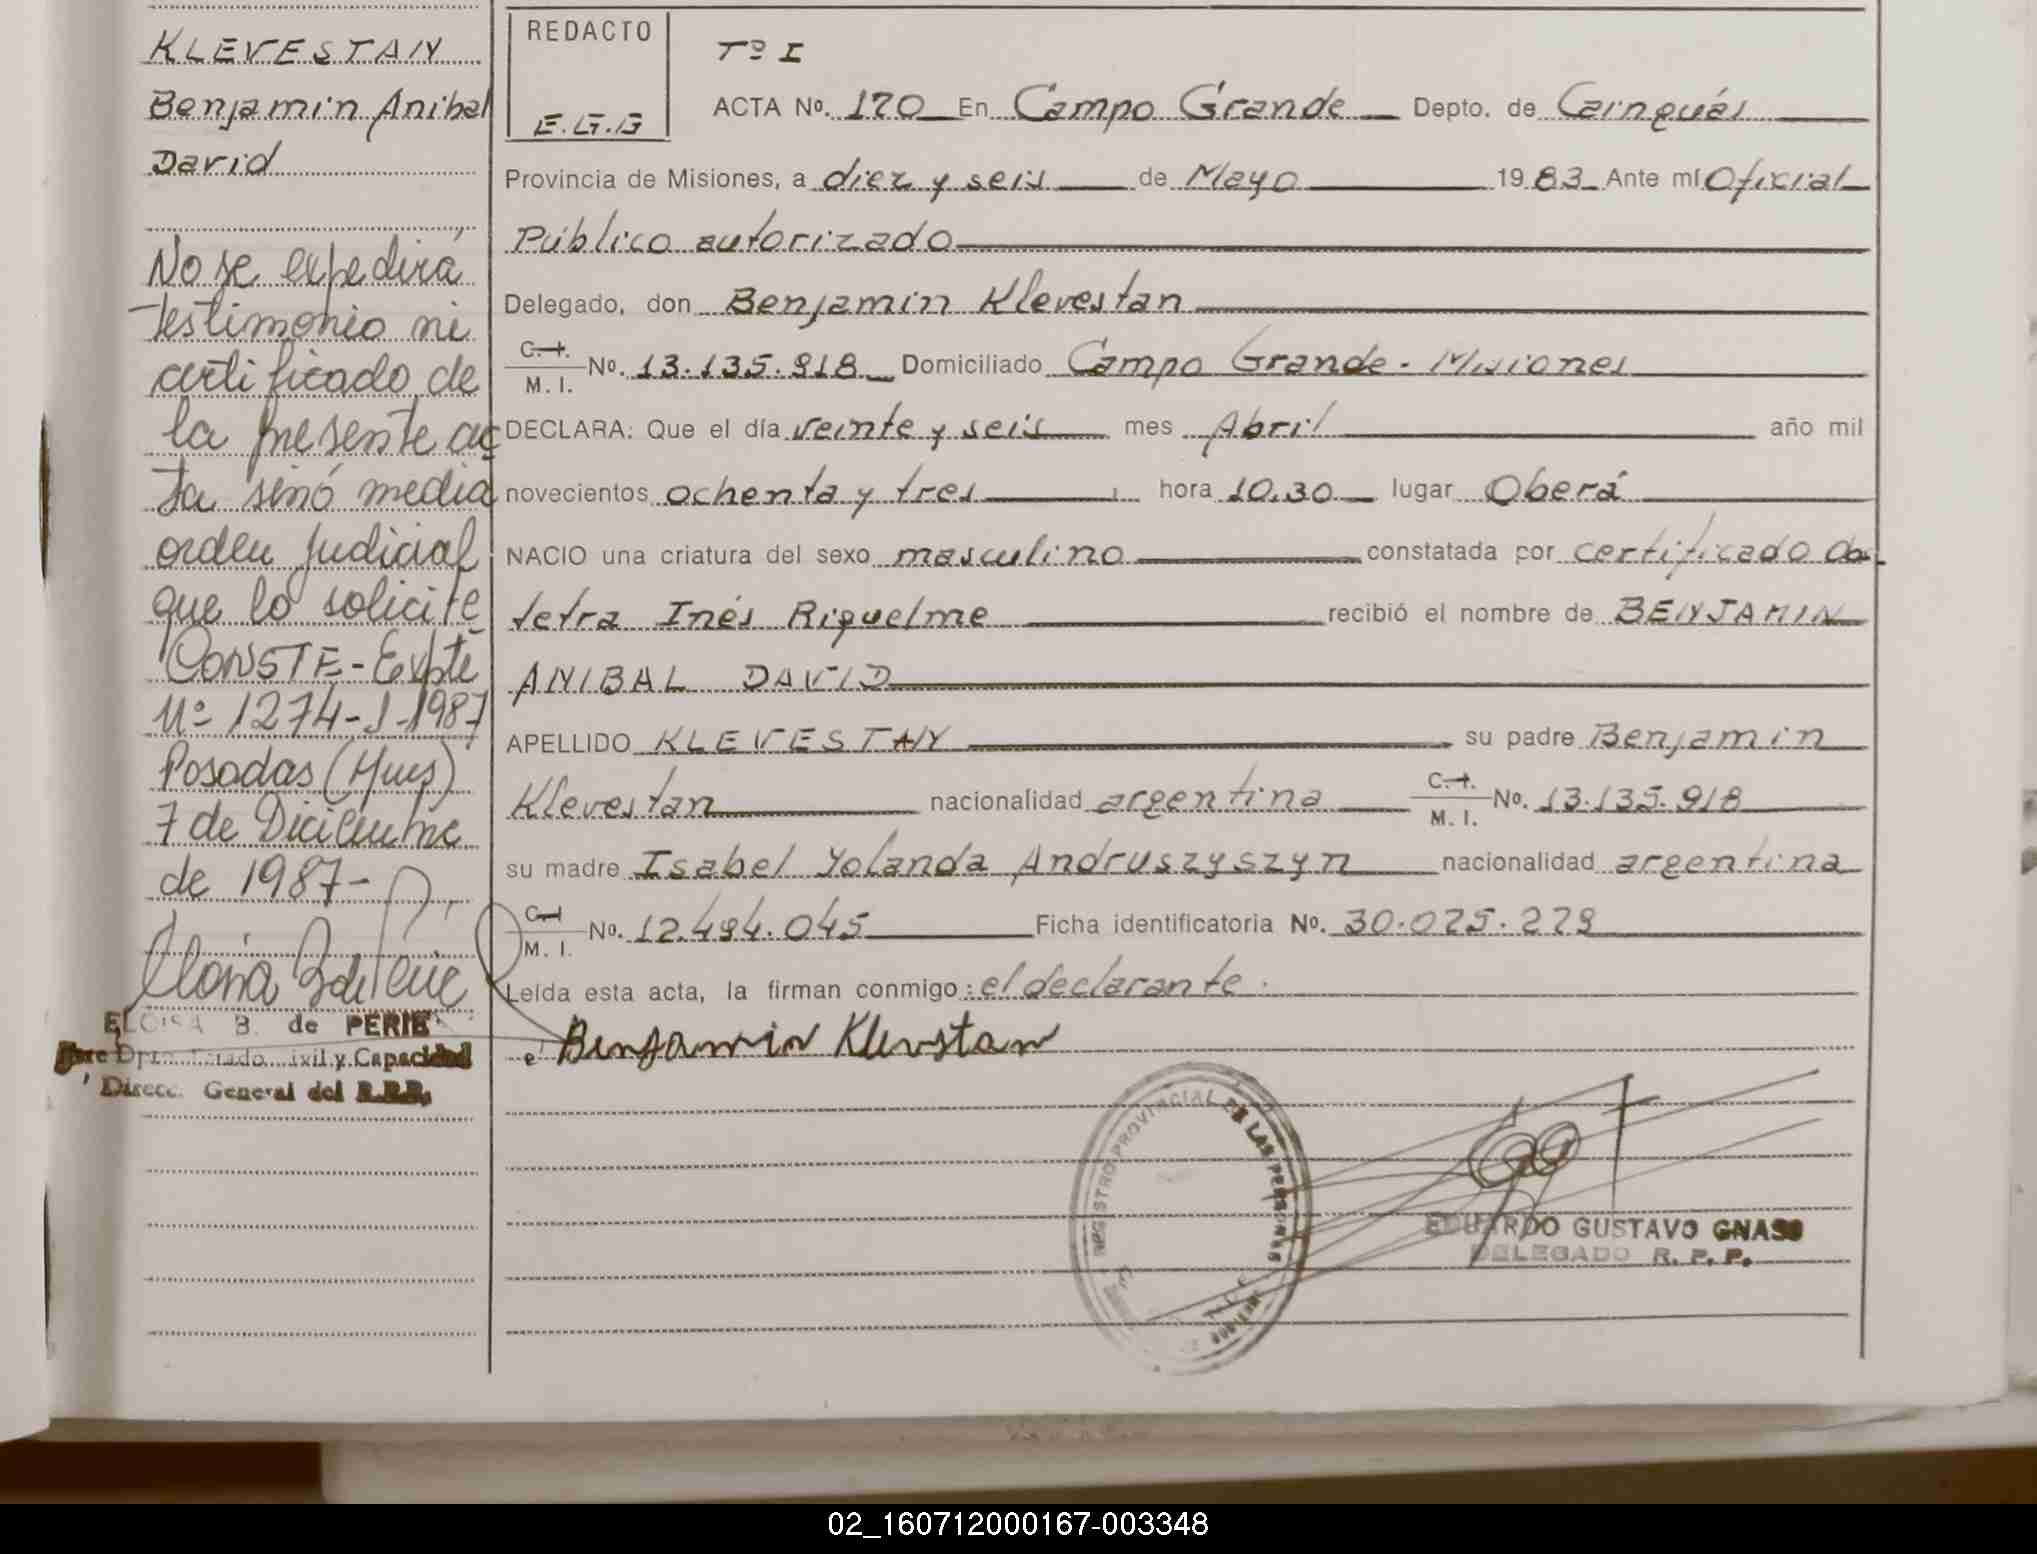 KLEVESTAN
Benjamin Anibal
David
No se expedirá
testimonio ni
certificado de
la presente ac
ta sinó media
orden judicial
que lo solicite
CONSTE - Expte
Nº 1274-J-1987
Posadas (Mnes)
7 de Diciembre
de 1987-
ELOISA B. de PERIE
Jefe Dpto. Estado Civil y Capacidad
Direcc. General del R.P.P.
REDACTO
E.G.G
Tº I
ACTA Nº. 170 En Campo Grande Depto. de Cainguás
Provincia de Misiones, a diez y seis de Mayo 1983 Ante mí Oficial
Público autorizado
Delegado, don Benjamin Klevestan
C.I. M. I. No. 13.135.918 Domiciliado Campo Grande - Misiones
DECLARA: Que el día veinte y seis mes Abril año mil
novecientos ochenta y tres hora 10.30 lugar Oberá
NACIO una criatura del sexo masculino constatada por certificado Oos
tetra Inés Riquelme recibió el nombre de BENJAMIN
ANIBAL DAVID
APELLIDO KLEVESTAN su padre Benjamin
Klevestan nacionalidad argentina C.I. M. I. No. 13.135.918
su madre Isabel Yolanda Andruszyszyn nacionalidad argentina
C.I. M. I. No. 12.494.045 Ficha identificatoria No. 30.025.279
Leída esta acta, la firman conmigo: el declarante.
Benjamin Klevstan
REGISTRO PROVINCIAL DE LAS PERSONAS
EDUARDO GUSTAVO GNASS
DELEGADO R. P. P.
02_160712000167-003348